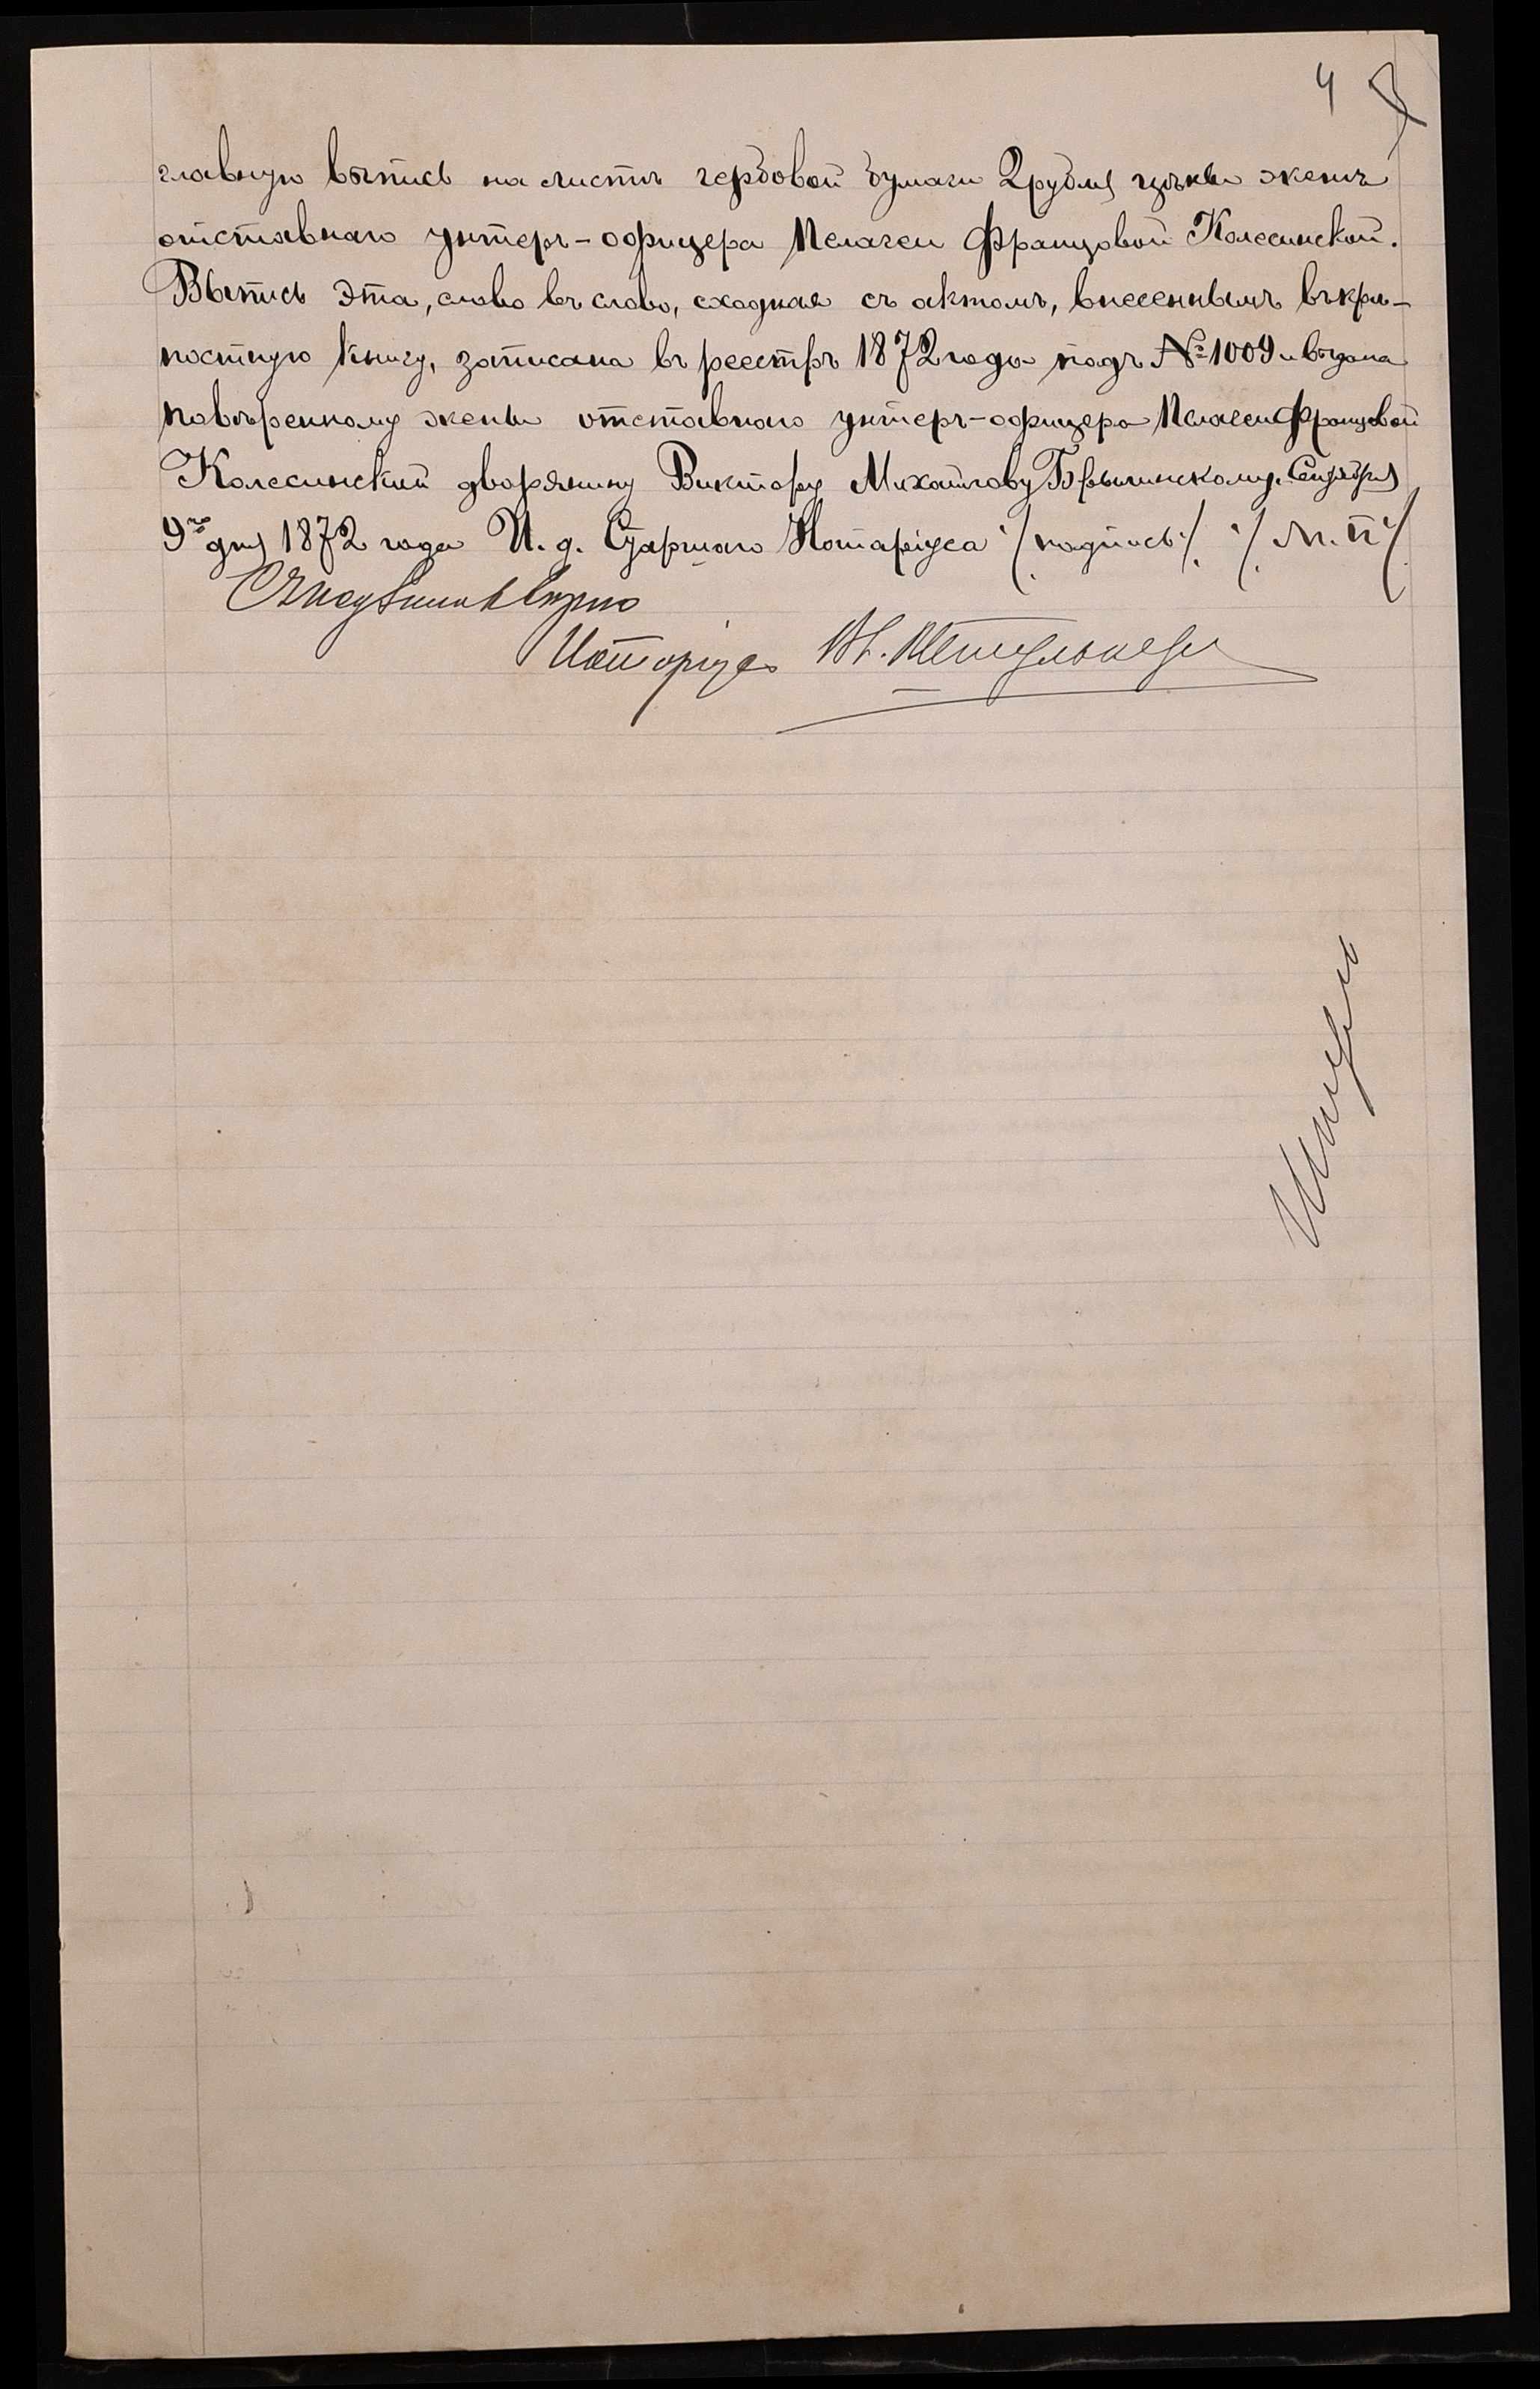 4
главную выпись на листѣ гербовой бумаги 2 рубля цѣны женѣ
отставнаго унтеръ-офицера Пелагеи Францовой Колесинской.
Выпись эта, слово въ слово, сходная съ актомъ, внесеннымъ въ крѣ-
постную книгу, записана въ реестръ 1872 года подъ № 1009 и выдана
повѣренному жены отставнаго унтеръ-офицера Пелагеи Францовой
Колесинской дворянину Виктору Михайлову Сентября
9го дня 1872 года И. д. Старшаго Нотаріуса /подпись/. /М. П./
Нотаріусъ